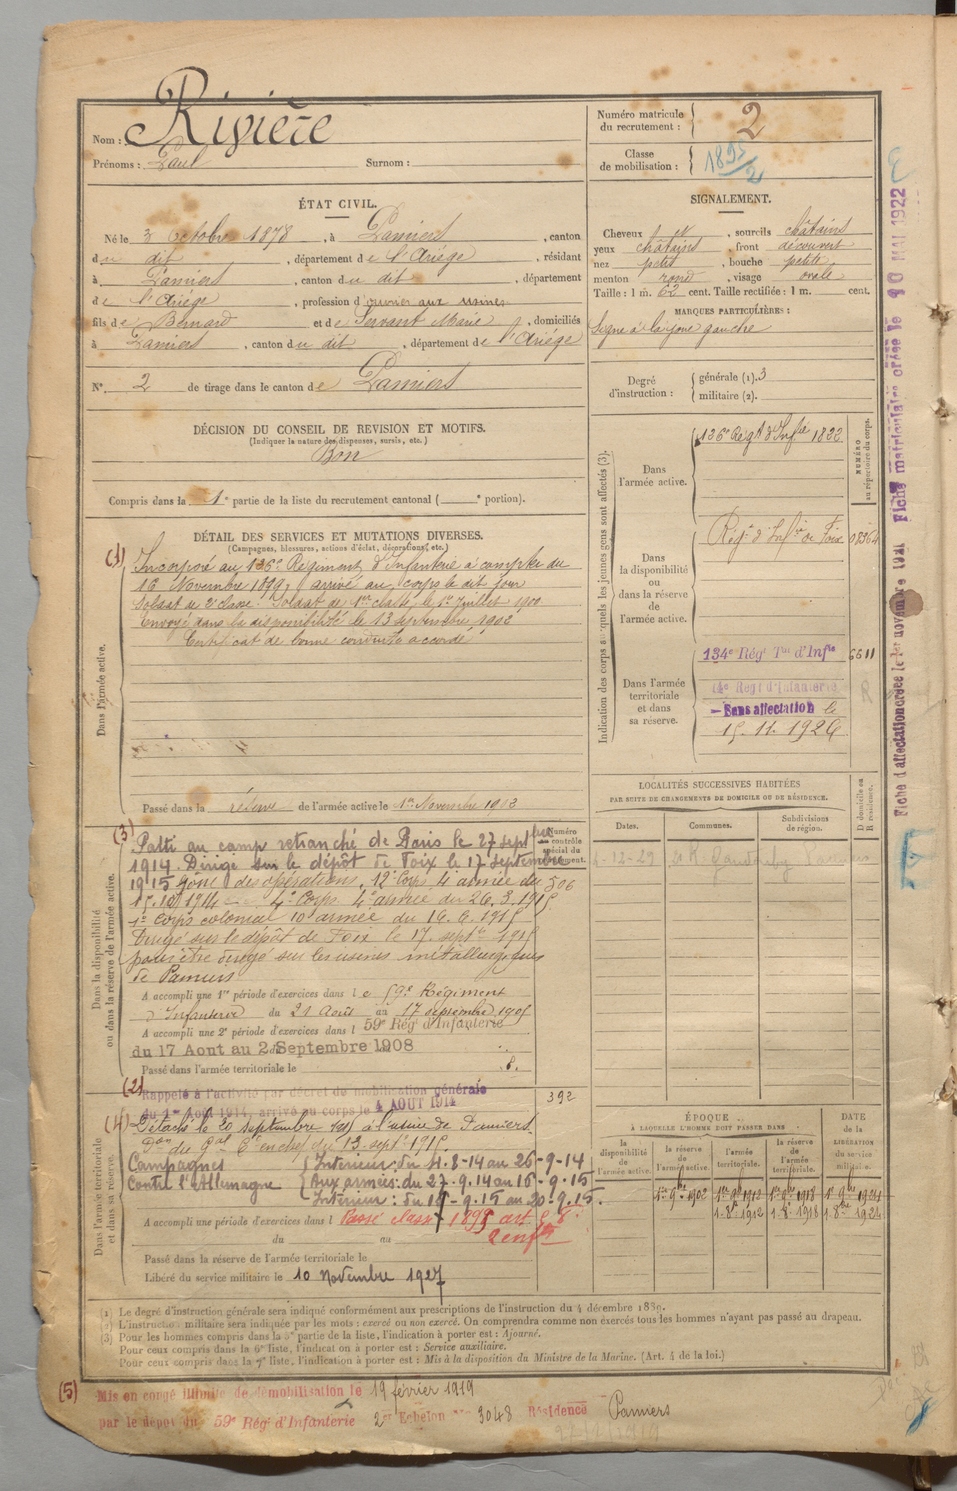 Nom : Rivière
Prénoms : Paul Surnom :
Numéro matricule du recrutement : 2
Classe de mobilisation : 1895/2
ÉTAT CIVIL.
Né le 3 Octobre 1878, à Pamiers, canton
du dit, département de l'Ariége, résidant
à Pamiers, canton du dit, département
de l'Ariége, profession d'ouvrier aux usines
fils de Bernard et de Servant Marie, domiciliés
à Pamiers, canton du dit, département de l'Ariége
N° 2 de tirage dans le canton de Pamiers
SIGNALEMENT.
Cheveux et, sourcils châtains
yeux châtains, front découvert
nez petit, bouche petite
menton rond, visage ovale
Taille : 1 m. 62 cent. Taille rectifiée : 1 m. cent.
MARQUES PARTICULIÈRES :
Signe à la joue gauche
Degré d'instruction : générale (1). 3
militaire (2).
DÉCISION DU CONSEIL DE REVISION ET MOTIFS.
(Indiquer la nature des dispenses, sursis, etc.)
Bon
Compris dans la 1e partie de la liste du recrutement cantonal ( e portion).
DÉTAIL DES SERVICES ET MUTATIONS DIVERSES.
(Campagnes, blessures, actions d'éclat, décorations, etc.)
Dans l'armée active.
(1) Incorporé au 136e Régiment d'Infanterie à compter du
16 Novembre 1899, arrivé au corps le dit jour
Soldat de 2e classe. Soldat de 1re classe le 1er Juillet 1900
Envoyé dans la disponibilité le 13 septembre 1902
Certificat de bonne conduite accordé
Passé dans la réserve de l'armée active le 1er Novembre 1902
Indication des corps auxquels les jeunes gens sont affectés (3).
NUMÉRO au répertoire du corps.
Dans l'armée active.
136e Régt d'Infie 1832
Dans la disponibilité ou dans la réserve de l'armée active.
Régt d'Infie de Foix
Dans l'armée territoriale et dans sa réserve.
134e Régt Tal d'Infie 6611
14e Régt d'Infanterie R
Sans affectation le
15.11.1926
Fiche d'affectation créée le 1er novembre 1921 Fiche matriculaire créée le 10 MAI 1922
LOCALITÉS SUCCESSIVES HABITÉES
PAR SUITE DE CHANGEMENTS DE DOMICILE OU DE RÉSIDENCE.
Dates. Communes. Subdivisions de région. D domicile ou R résidence.
-12-29
Dans la disponibilité ou dans la réserve de l'armée active.
Numéro au contrôle spécial du recrutement.
(3) Parti au camp retranché de Paris le 27 septbre
1914. Dirigé sur le dépôt de Foix le 17 septembre
1915 zone des opérations, 12e Corps 4e armée du 506
15.10.1914 4e Corps 4e armée du 26.3.1915
1er Corps colonial 10e armée du 16.6.1915
Dirigé sur le dépôt de Foix le 17 septbre 1915
pour être dirigé sur les usines métallurgiques
de Pamiers
A accompli une 1re période d'exercices dans le 59e Régiment
d'Infanterie du 21 Août au 17 septembre 1905
A accompli une 2e période d'exercices dans l 59e Rég d'Infanterie
du 17 Aout au 2 Septembre 1908
Passé dans l'armée territoriale le
Dans l'armée territoriale et dans sa réserve.
(2) Rappelé à l'activité par décret de mobilisation générale 392
du 1er Août 1914, arrivé au corps le 4 AOUT 1914
(4) Détaché le 20 septembre 1915 à l'usine de Pamiers
Don du Gal Ct en chef du 13 septbre 1915
Campagnes Intérieur : du 4-8-14 au 26-9-14
Contre l'Allemagne Aux armées : du 27-9-14 au 16-9-15
Intérieur : du 17-9-15 au 20-9-15.
A accompli une période d'exercices dans l
Passé classe 1895 art 58
2 enfts
du au
Passé dans la réserve de l'armée territoriale le
Libéré du service militaire le 10 Novembre 1927
ÉPOQUE
À LAQUELLE L'HOMME DOIT PASSER DANS
DATE de la LIBÉRATION du service militaire.
la disponibilité de l'armée active. la réserve de l'armée active. l'armée territoriale. la réserve de l'armée territoriale.
1er 9bre 1902 1er 9bre 1912 1er 9bre 1918 1er 9bre 1924
1.8bre 1912 1.8bre 1918 1.8bre 1924
(1) Le degré d'instruction générale sera indiqué conformément aux prescriptions de l'instruction du 4 décembre 1889.
(2) L'instruction militaire sera indiquée par les mots : exercé ou non exercé. On comprendra comme non exercés tous les hommes n'ayant pas passé au drapeau.
(3) Pour les hommes compris dans la 5e partie de la liste, l'indication à porter est : Ajourné.
Pour ceux compris dans la 6e liste, l'indication à porter est : Service auxiliaire.
Pour ceux compris dans la 7e liste, l'indication à porter est : Mis à la disposition du Ministre de la Marine. (Art. 4 de la loi.)
(5) Mis en congé illimité de démobilisation le 19 février 1919
par le dépôt du 59e Régt d'Infanterie 2e Echelon 3048 Résidence Pamiers